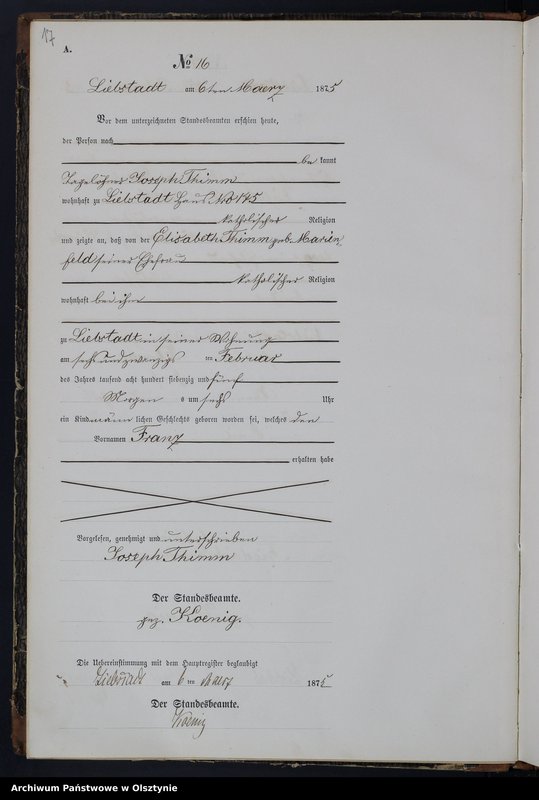 17
A.
No 16
Liebstadt am 6ten Maerz 1875
Vor dem unterzeichneten Standesbeamten erschien heute,
der Person nach
be kannt
Tagelöhner Joseph Thimm
wohnhaft zu Liebstadt Haus No 145
katholischer Religion
und zeigte an, daß von der Elisabeth Thimm geb. Marien
feld seiner Ehefrau
katholischer Religion
wohnhaft bei ihm
zu Liebstadt in seiner Wohnung
am sechs und zwanzigs ten Februar
des Jahres tausend acht hundert siebenzig und fünf
Morgen s um sechs Uhr
ein Kind männ lichen Geschlechts geboren worden sei, welches den
Vornamen Franz
erhalten habe
Vorgelesen, genehmigt und unterschrieben
Joseph Thimm
Der Standesbeamte.
gez. Koenig.
Die Uebereinstimmung mit dem Hauptregister beglaubigt
Liebstadt am 6 ten Maerz 1875
Der Standesbeamte.
Koenig
Archiwum Państwowe w Olsztynie